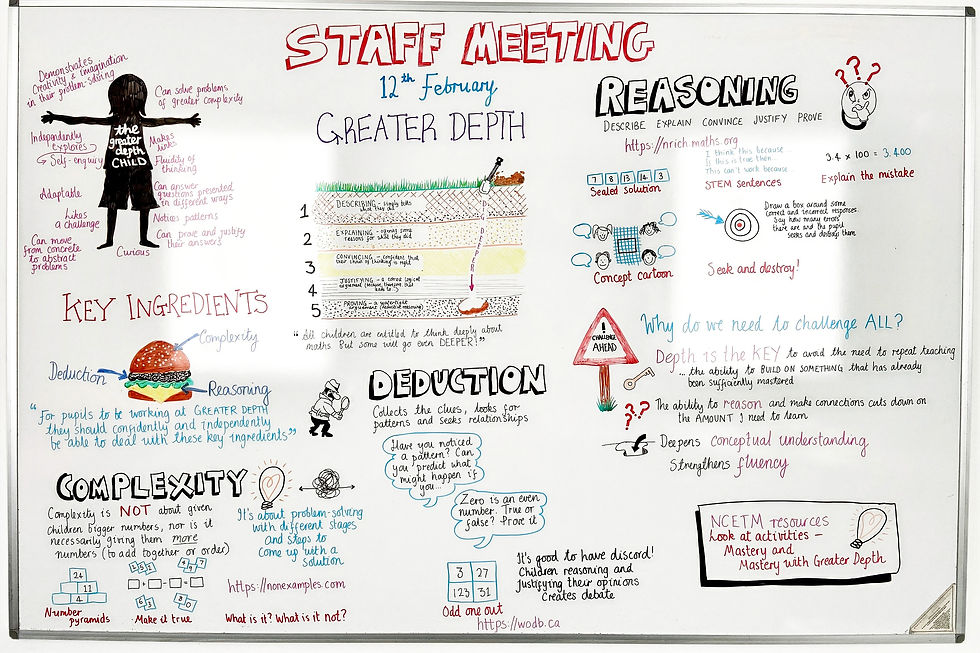 STAFF MEETING
12th February
GREATER DEPTH
Demonstrates
Creativity & imagination
in their problem-solving
Can solve problems
of greater complexity
Independently
explores
Self-enquiry
the
greater
depth
CHILD
Makes
links
Fluidity of
thinking
Adaptable
Can answer
questions presented
in different ways
Likes
a challenge
Notices patterns
Can move
from concrete
to abstract
problems
Can prove and justify
their answers
Curious
1
DESCRIBING - simply tells
what they did
2
EXPLAINING - offering some
reasons for what they did
3
CONVINCING - confident that
their chain of thinking is right
4
JUSTIFYING - a correct logical
argument (because, therefore, that
leads to...)
5
PROVING - a watertight
argument (deductive reasoning)
DEEPER
"All children are entitled to think deeply about
maths. But some will go even DEEPER!"
REASONING
DESCRIBE EXPLAIN CONVINCE JUSTIFY PROVE
https://nrich.maths.org
7 8 13 14 3
Sealed solution
I think this because...
If this is true then...
This can't work because...
STEM sentences
3.4 x 100 = 3.400
Explain the mistake
Concept cartoon
Draw a box around some
correct and incorrect responses.
Say how many errors
there are and the pupil
seeks and destroys them
Seek and destroy!
KEY INGREDIENTS
Complexity
Deduction
Reasoning
"For pupils to be working at GREATER DEPTH
they should confidently and independently
be able to deal with these key ingredients"
DEDUCTION
Collects the clues, looks for
patterns and seeks relationships
Have you noticed
a pattern? Can
you predict what
might happen if
you...
Zero is an even
number. True or
false? Prove it
3 27
123 31
Odd one out
It's good to have discord!
Children reasoning and
justifying their opinions
Creates debate
https://wodb.ca
CHALLENGE
AHEAD
Why do we need to challenge ALL?
Depth is the KEY to avoid the need to repeat teaching
... the ability to BUILD ON SOMETHING that has already
been sufficiently mastered
The ability to reason and make connections cuts down on
the AMOUNT I need to learn
Deepens conceptual understanding
Strengthens fluency
COMPLEXITY
Complexity is NOT about given
Children bigger numbers, nor is it
necessarily giving them more
numbers (to add together or order)
It's about problem-solving
with different stages
and steps to
Come up with a
solution
24
11
4
Number
pyramids
Make it true
https://nonexamples.com
What is it? What is it not?
NCETM resources
Look at activities -
Mastery and
Mastery with Greater Depth